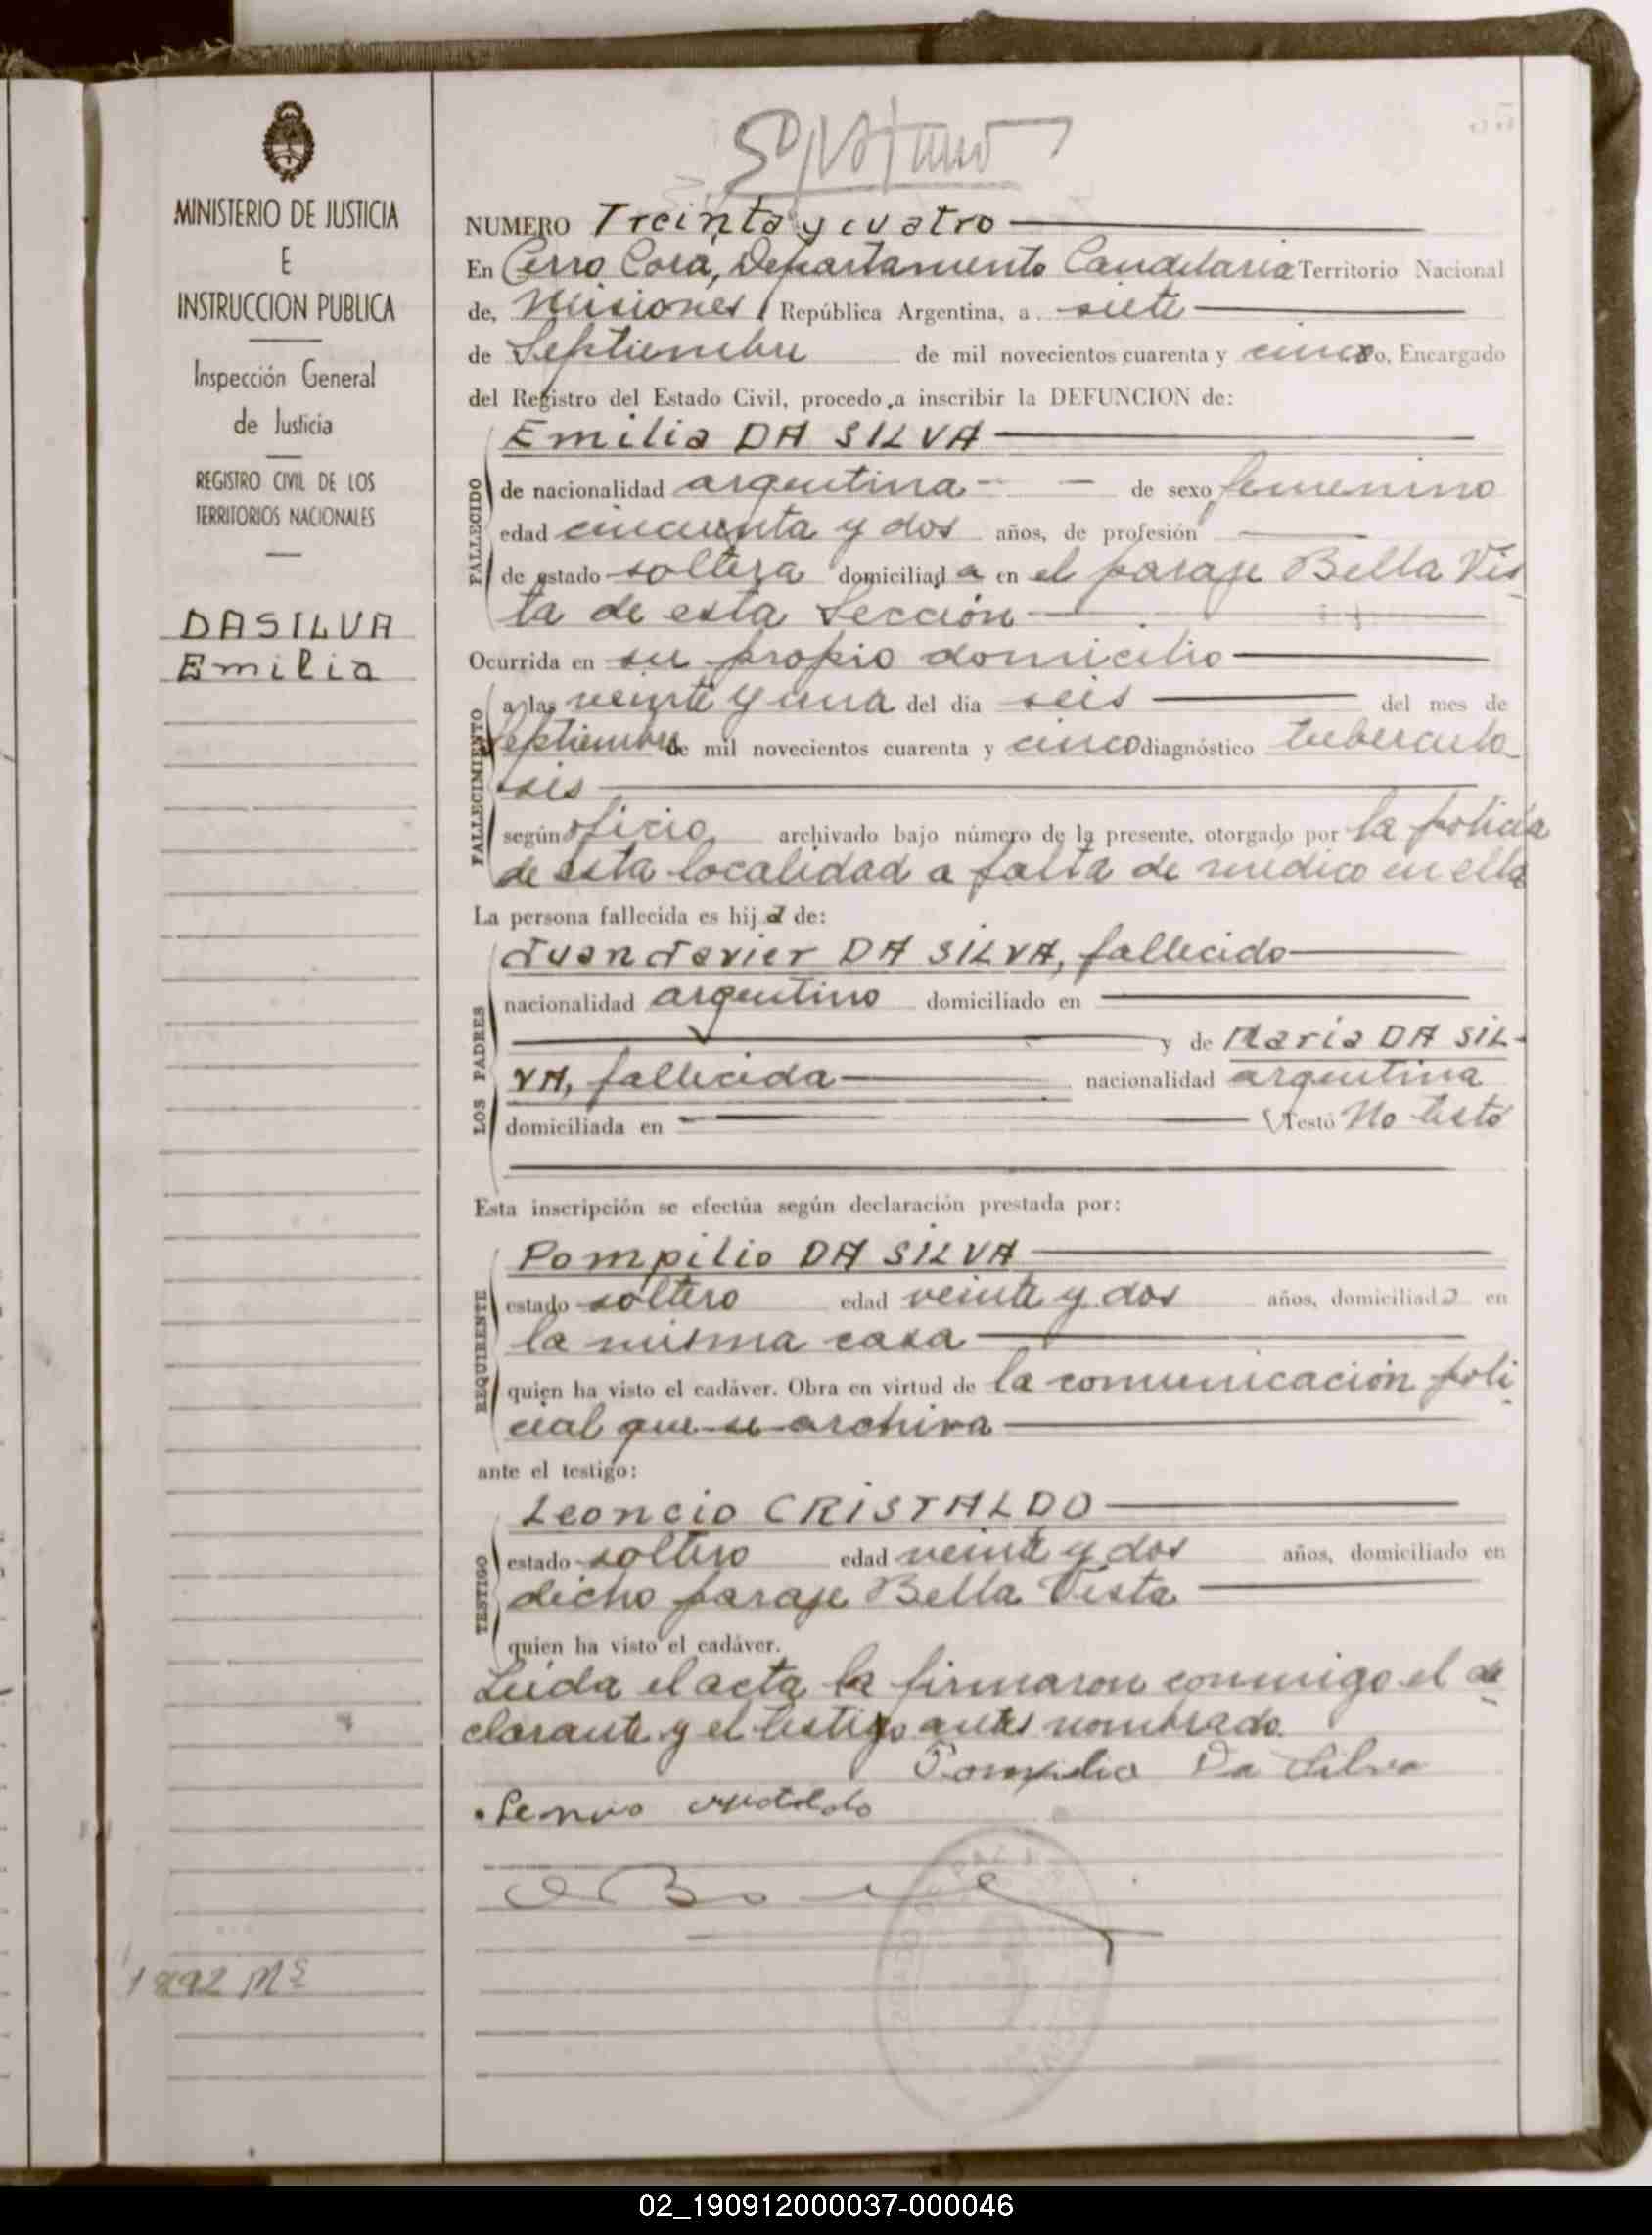 MINISTERIO DE JUSTICIA
E
INSTRUCCION PUBLICA
Inspección General
de Justicia
REGISTRO CIVIL DE LOS
TERRITORIOS NACIONALES
DASILVA
Emilia
NUMERO Treinta y cuatro
En Cerro Corá, Departamento Candelaria Territorio Nacional
de, Misiones, República Argentina, a siete
de Septiembre de mil novecientos cuarenta y cinco, Encargado
del Registro del Estado Civil, procedo a inscribir la DEFUNCION de:
FALLECIDO
Emilia DA SILVA
de nacionalidad argentina - - de sexo femenino
edad cincuenta y dos años, de profesión
de estado soltera domiciliada en el paraje Bella Vis
ta de esta Sección
Ocurrida en su propio domicilio
FALLECIMIENTO
a las veinte y una del dia seis del mes de
Septiembre de mil novecientos cuarenta y cinco diagnóstico tuberculo
sis
según oficio, archivado bajo número de la presente, otorgado por la policia
de esta localidad a falta de medico en ella
La persona fallecida es hija de:
LOS PADRES
Juan Javier DA SILVA, fallecido
nacionalidad argentino domiciliado en
y de Maria DA SIL-
VA, fallecida nacionalidad argentina
domiciliada en (Testó No testó
Esta inscripción se efectúa según declaración prestada por:
REQUIRENTE
Pompilio DA SILVA
estado soltero edad veinte y dos años, domiciliado en
la misma casa
quien ha visto el cadáver. Obra en virtud de la comunicación poli
cial que se archiva
ante el testigo:
TESTIGO
Leoncio CRISTALDO
estado soltero edad veinte y dos años, domiciliado en
dicho paraje Bella Vista
quien ha visto el cadáver.
Leida el acta la firmaron conmigo el de
clarante y el testigo antes nombrado.
Pompilio Da Silva
1892 Ms
02_190912000037-000046